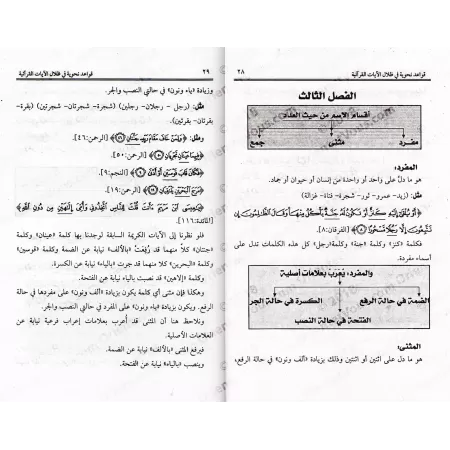 ٢٨
قواعد نحوية في ظلال الآيات القرآنية
الفصل الثالث
أقسام الاسم من حيث العدد
مفرد
مثنى
جمع
المفرد:
هو ما دلّ على واحد أو واحدة من إنسان أو حيوان أو جماد.
مثل: (زيد- عمرو- ثور- شجرة- فتاة- غزالة)
﴿أَوْ يُلْقَى إِلَيْهِ كَنزٌ أَوْ تَكُونُ لَهُ جَنَّةٌ يَأْكُلُ مِنْهَا وَقَالَ الظَّالِمُونَ إِن
تَتَّبِعُونَ إِلَّا رَجُلًا مَّسْحُورًا﴾ [الفرقان:٨]
فكلمة «كنز» وكلمة «جنة» وكلمة«رجل» كل هذه الكلمات تدل على
أسماء مفردة.
والمفرد، يُعرَب بعلامات أصلية
الضمة في حالة الرفع
الكسرة في حالة الجر
الفتحة في حالة النصب
المثنى:
هو ما دل على اثنين أو اثنتين وذلك بزيادة «ألف ونون» في حالة الرفع،
قواعد نحوية في ظلال الآيات القرآنية
٢٩
وزيادة «ياء ونون» في حالتي النصب والجر.
مثل: (رجل - رجلان- رجلين) (شجرة- شجرتان- شجرتين) (بقرة-
بقرتان- بقرتين).
ومثل: ﴿وَلِمَنْ خَافَ مَقَامَ رَبِّهِ جَنَّتَانِ﴾ [الرحمن:٤٦].
﴿فِيهِمَا عَيْنَانِ تَجْرِيَانِ﴾ [الرحمن:٥٠].
﴿فَكَانَ قَابَ قَوْسَيْنِ أَوْ أَدْنَى﴾ [النجم:٩].
﴿مَرَجَ الْبَحْرَيْنِ يَلْتَقِيَانِ﴾ [الرحمن:١٩].
﴿يَا عِيسَى ابْنَ مَرْيَمَ أَأَنتَ قُلْتَ لِلنَّاسِ اتَّخِذُونِي وَأُمِّيَ إِلَهَيْنِ مِن دُونِ اللَّهِ﴾
[المائدة:١١٦].
فلو نظرنا إلى الآيات الكريمة السابقة لوجدنا بها كلمة «عينان» وكلمة
«جنتان» كلا منهما قد رُفِعَتْ «بالألف» نيابة عن الضمة. وكلمة «قوسين»
وكلمة «البحرين» كلا منهما قد جرت «بالياء» نيابة عن الكسرة.
وكلمة «إلاهين» قد نصبت بالياء نيابة عن الفتحة.
وهكذا فإن مثنى أي كلمة يكون بزيادة «ألف ونون» على مفردها في حالة
الرفع. ويكون بزيادة «ياء ونون» على المفرد في حالتي الجر والنصب.
ونلاحظ هنا أن المثنى قد أُعرب بعلامات إعراب فرعية نيابة عن
العلامات الأصلية.
فيرفع المثنى «بالألف» نيابة عن الضمة.
وينصب «بالياء» نيابة عن الفتحة.